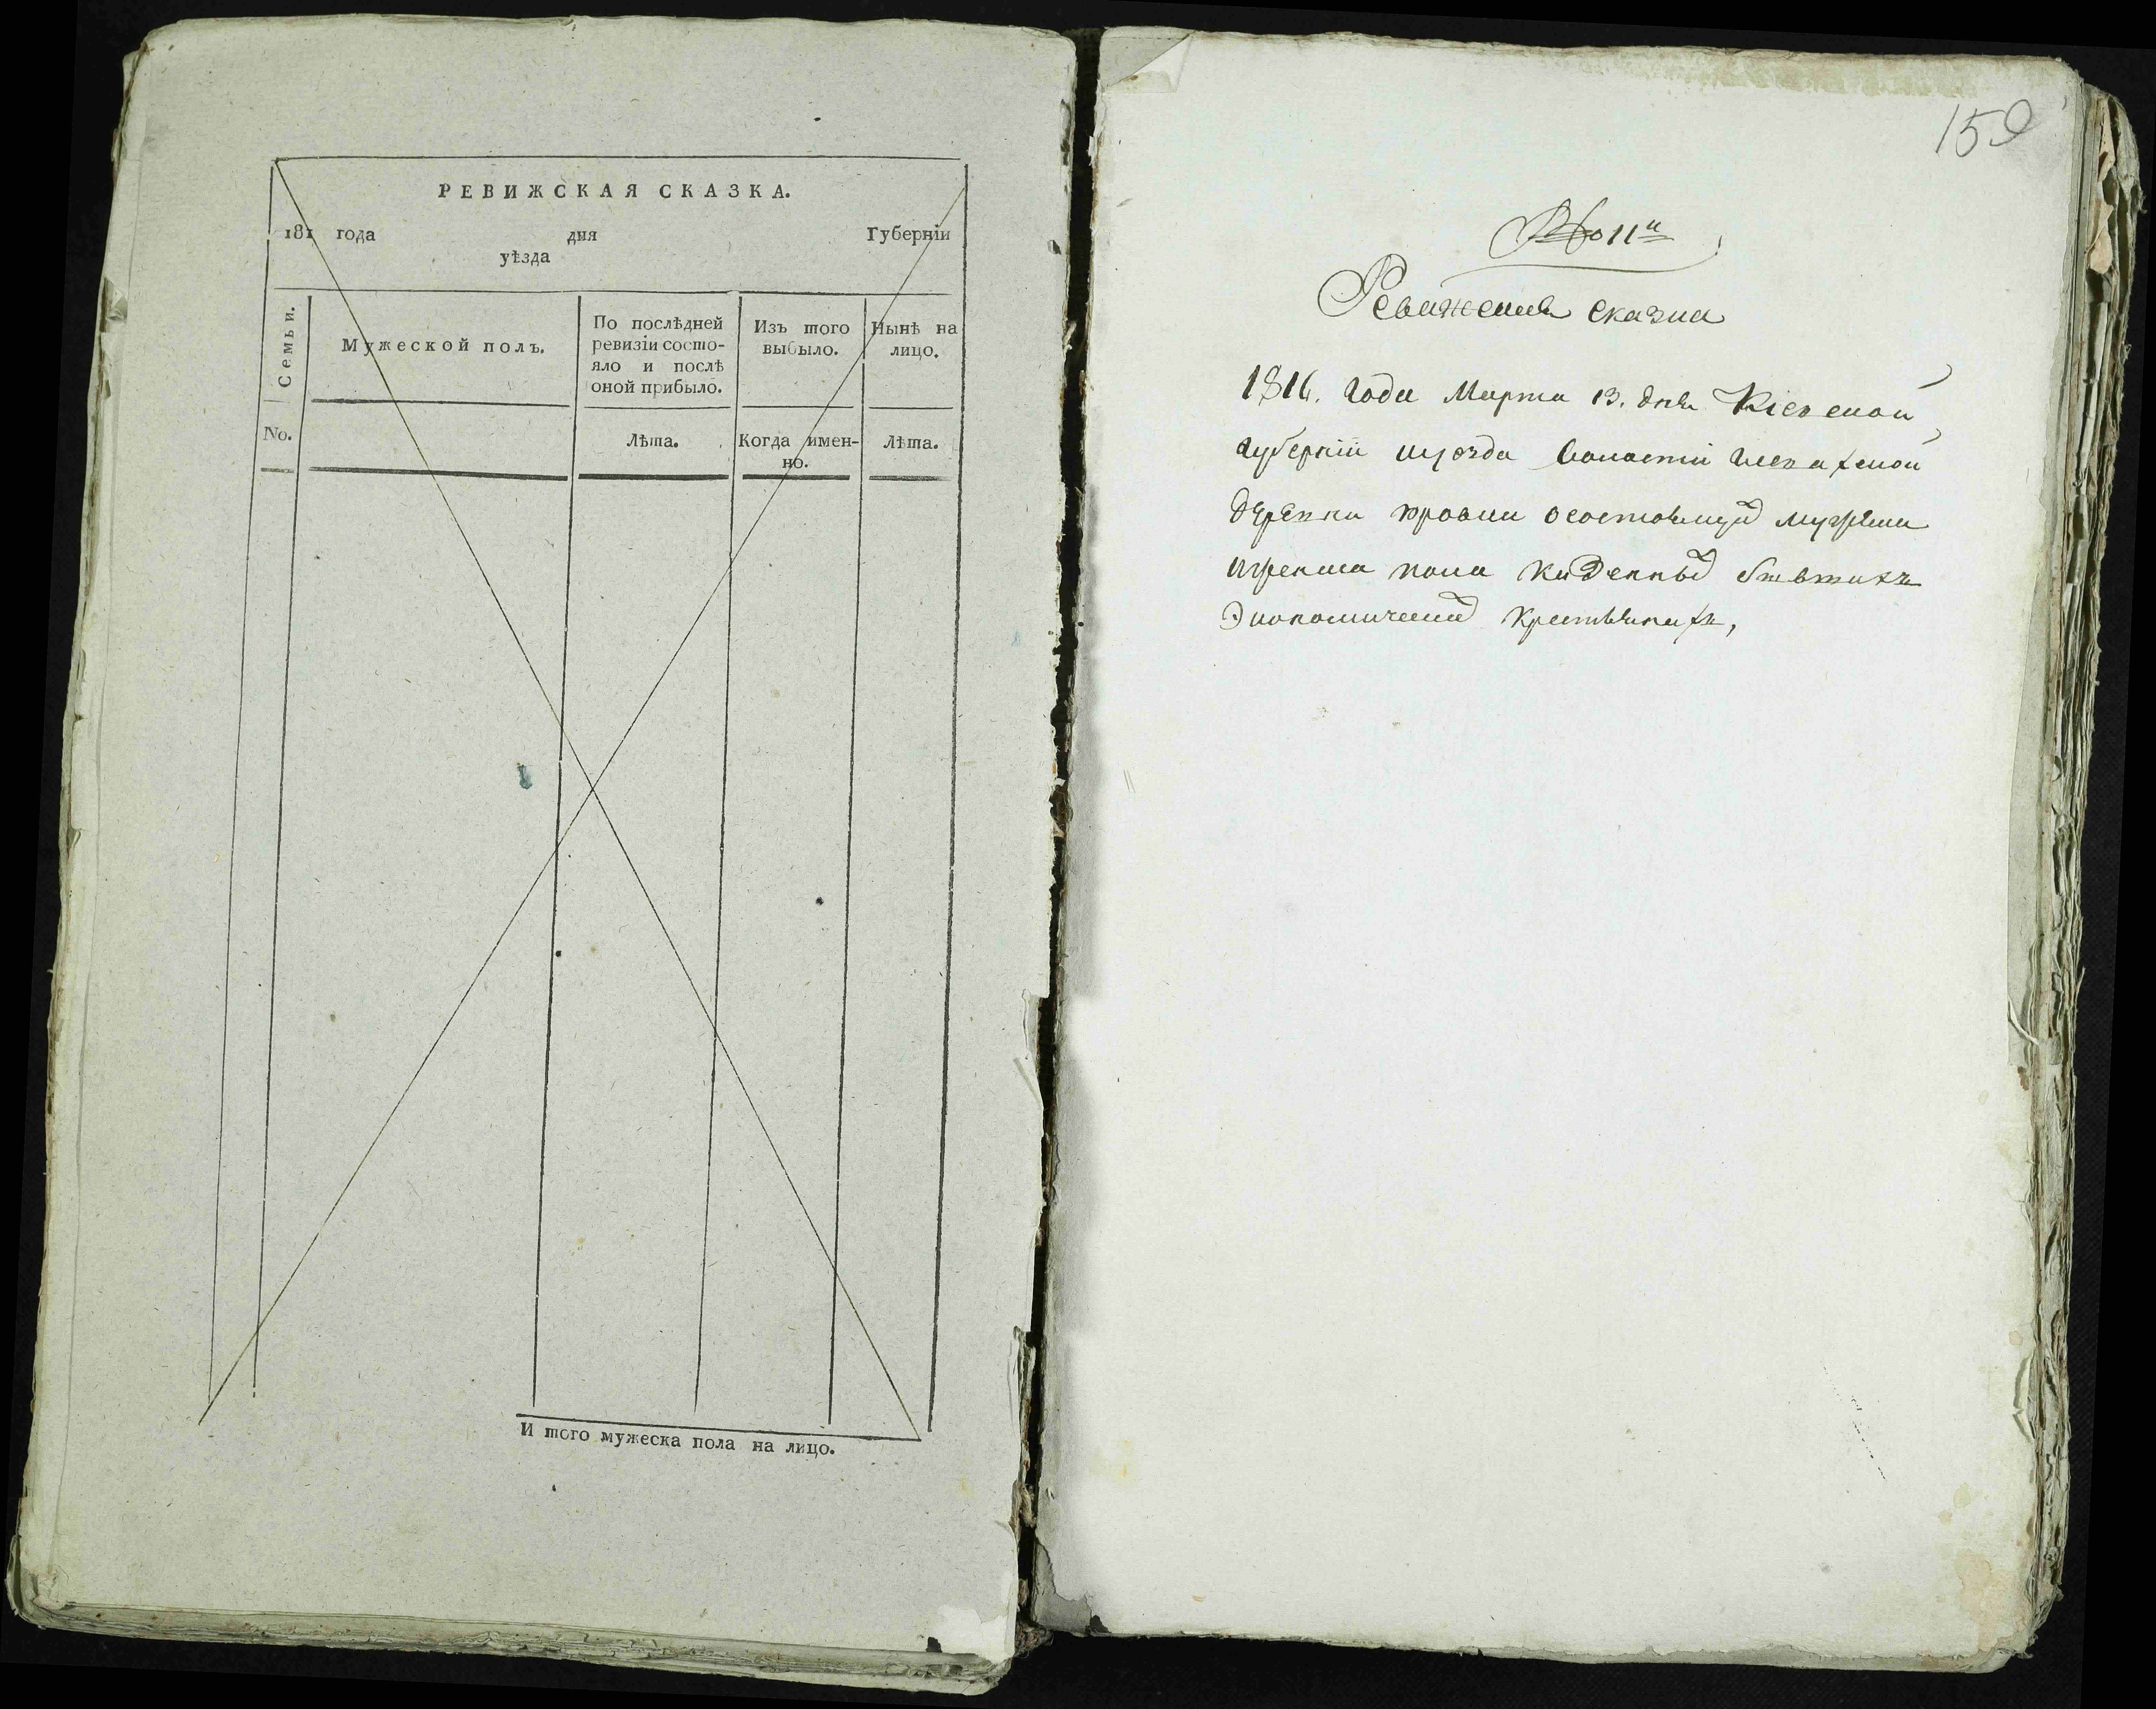 РЕВИЖСКАЯ СКАЗКА.
181 года дня Губерніи
уѣзда
Семьи.
No.
Мужеской полъ.
По послѣдней
ревизіи состо-
яло и послѣ
оной прибыло.
Лѣта.
Изъ того
выбыло.
Когда имен-
но.
Нынѣ на
лицо.
Лѣта.
И того мужеска пола на лицо.
159
№ 11й
Ревижская сказка
1816. года Марта 13. дня Кіевской
губерніи иуезда волости
деревни осостоящихъ мужеска
иженска пола казенныхъ бывшихъ
Экономическихъ крестьянахъ,